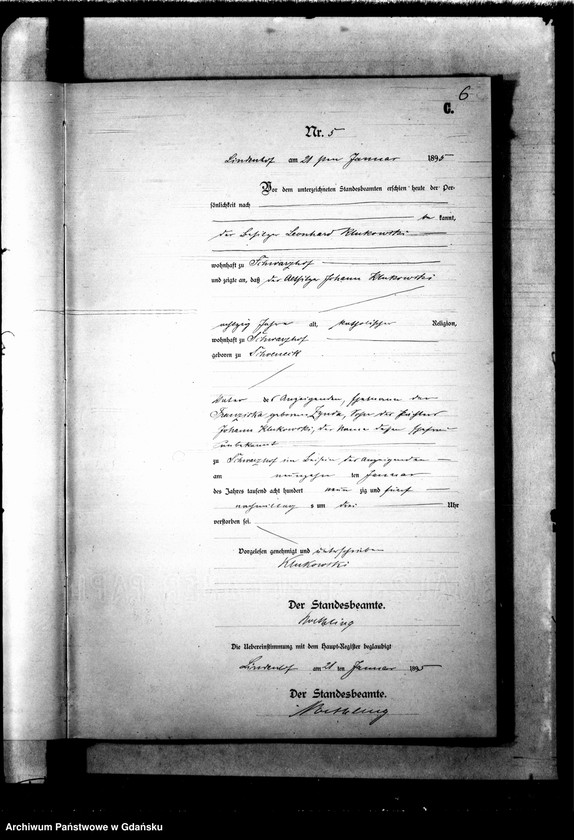 6
C.
Nr. 5
Lindenhof am 21 ten Januar 1895
Vor dem unterzeichneten Standesbeamten erschien heute der Per-
sönlichkeit nach
be kannt,
der Besitzer Leonhard Klukowski
wohnhaft zu Schwarzhof
und zeigte an, daß der Altsitzer Johann Klukowski
achtzig Jahre alt, katholischer Religion,
wohnhaft zu Schwarzhof
geboren zu Schoeneck
Vater des Anzeigenden, Ehemann der
Franziska geborene Zynda, Sohn des
Johann Klukowski, der Name dessen Ehefrau
unbekannt
zu Schwarzhof im Beisein des Anzeigenden
am neunzehn ten Januar
des Jahres tausend acht hundert neun zig und fünf
nachmittag s um drei Uhr
verstorben sei.
Vorgelesen genehmigt und unterschrieben
Klukowski
Der Standesbeamte.
Die Uebereinstimmung mit dem Haupt-Register beglaubigt
Lindenhof am 21 ten Januar 1895
Der Standesbeamte.
Archiwum Państwowe w Gdańsku